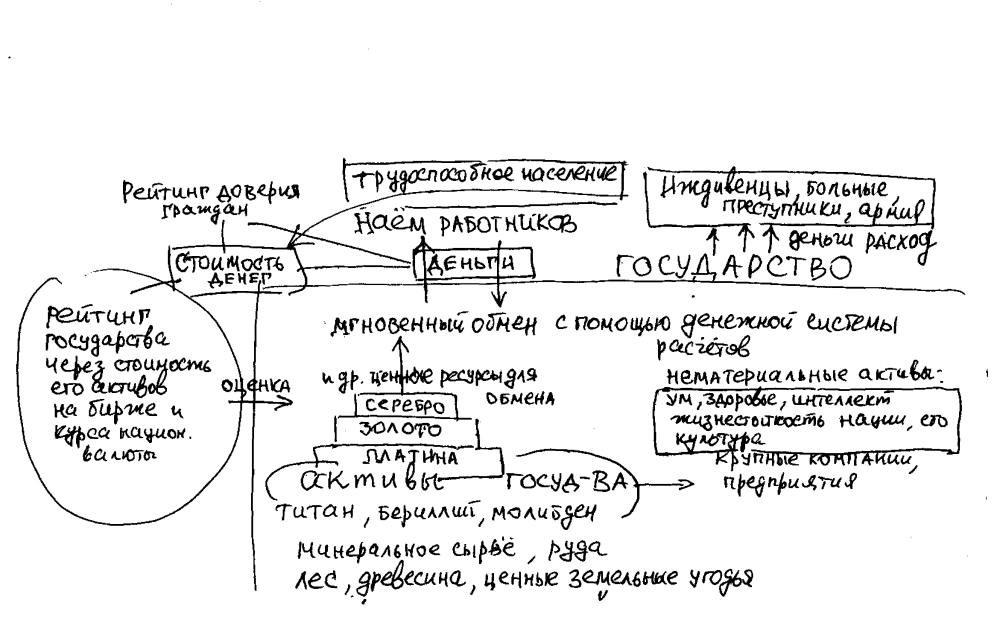 трудоспособное население
Рейтинг доверия
граждан
Наём работников
Иждивенцы, больные,
преступники, армия
деньги расход
ГОСУДАРСТВО
Стоимость
денег
ДЕНЬГИ
Рейтинг
государства
через стоимость
его активов
на бирже и
курса национ.
валюты
оценка
мгновенный обмен с помощью денежной системы
расчётов
и др. ценные ресурсы для
обмена
СЕРЕБРО
ЗОЛОТО
ПЛАТИНА
активы госуд-ва
титан, бериллий, молибден
минеральное сырьё, руда
лес, древесина, ценные земельные угодья
нематериальные активы:
ум, здоровье, интеллект
жизнестойкость нации, его
культура
крупные компании,
предприятия